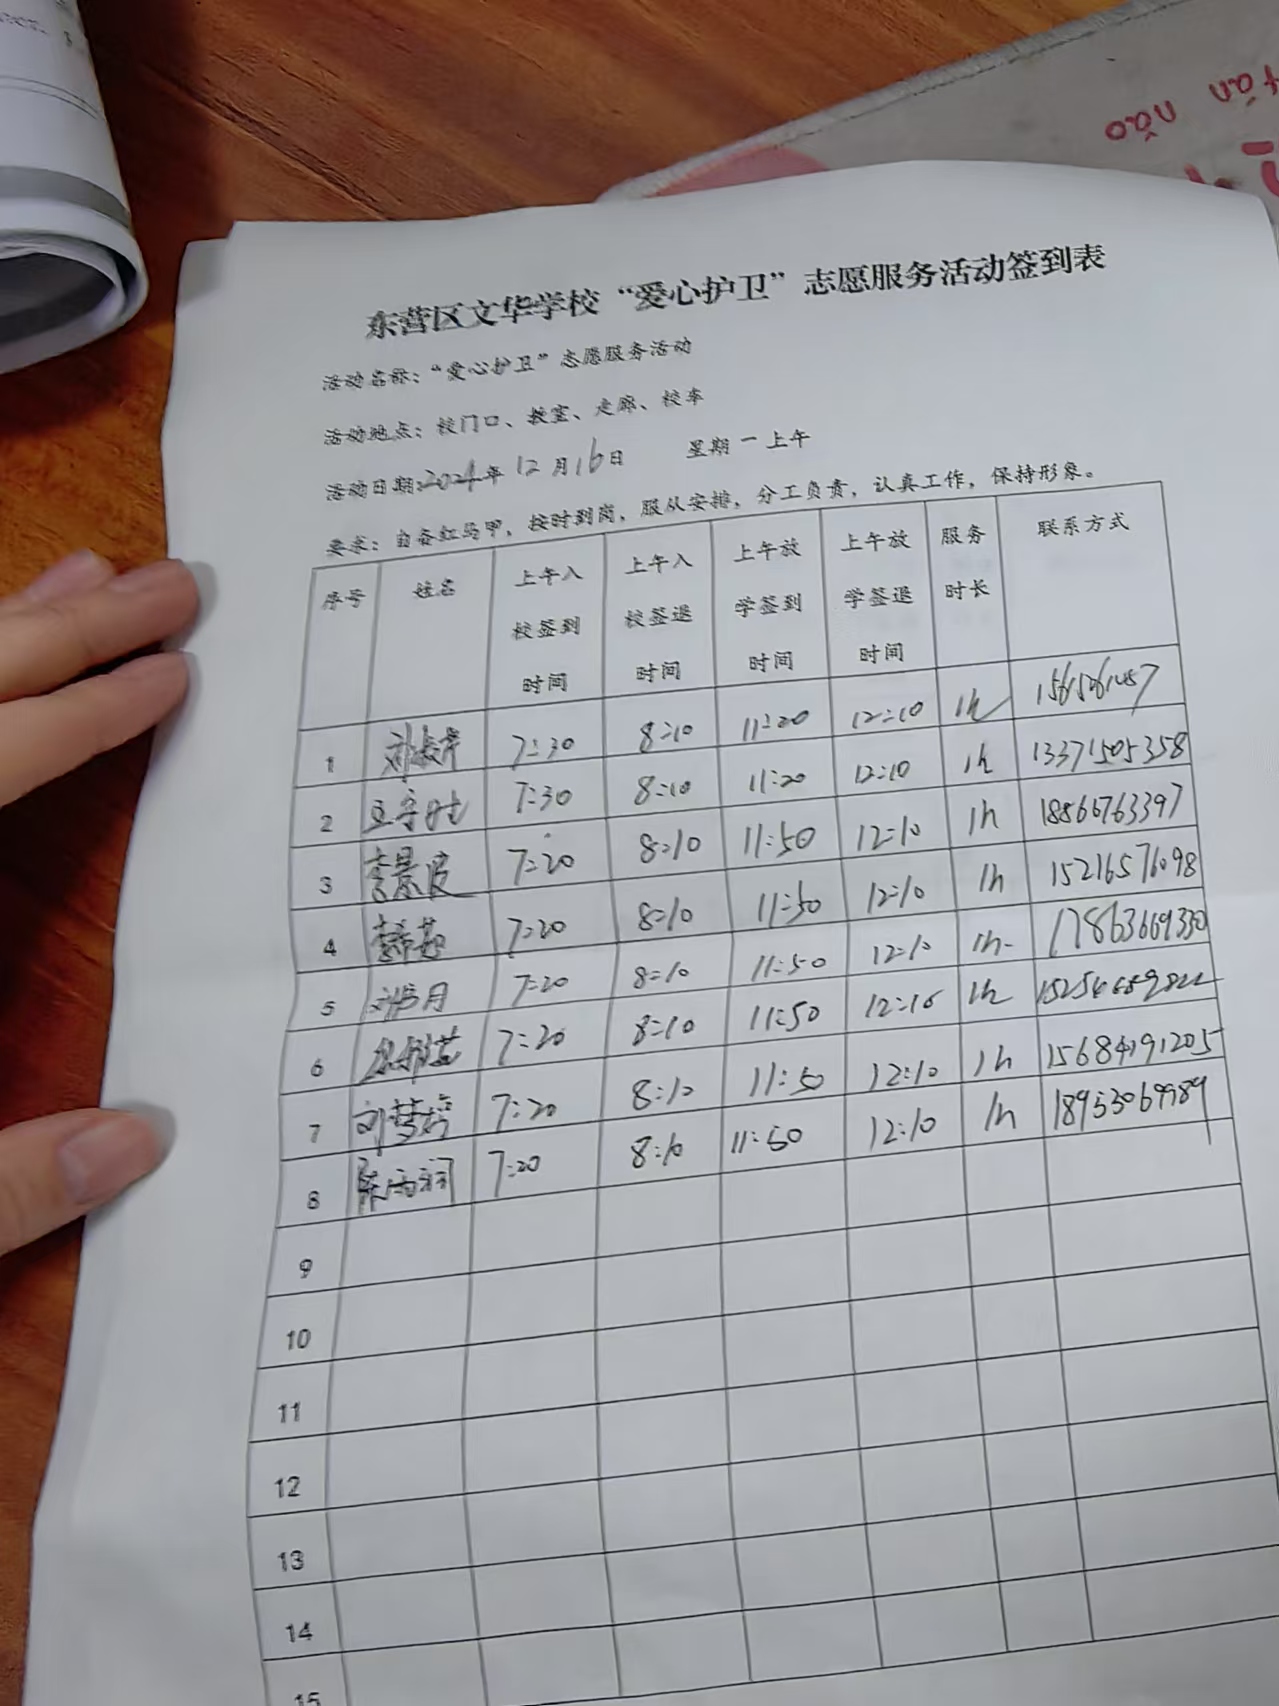 东营区文华学校“爱心护卫”志愿服务活动签到表
活动名称：“爱心护卫”志愿服务活动
活动地点：校门口、教室、走廊、校车
活动日期:2024年 12月16日 星期一上午
要求：自备红马甲，按时到岗，服从安排，分工负责，认真工作，保持形象。
序号 姓名 上午入校签到时间 上午入校签退时间 上午放学签到时间 上午放学签退时间 服务时长 联系方式
1 7:30 8:10 11:20 12:10 1h
2 7:30 8:10 11:20 12:10 1h 13371505358
3 李景波 7:20 8:10 11:50 12:10 1h 18866763397
4 7:20 8:10 11:50 12:10 1h 15216576098
5 7:20 8:10 11:50 12:10 1h 17863669330
6 7:20 8:10 11:50 12:10 1h
7 刘梦婷 7:20 8:10 11:50 12:10 1h 15684191205
8 陈雨润 7:20 8:10 11:50 12:10 1h 18953069989
9
10
11
12
13
14
15
nǎo